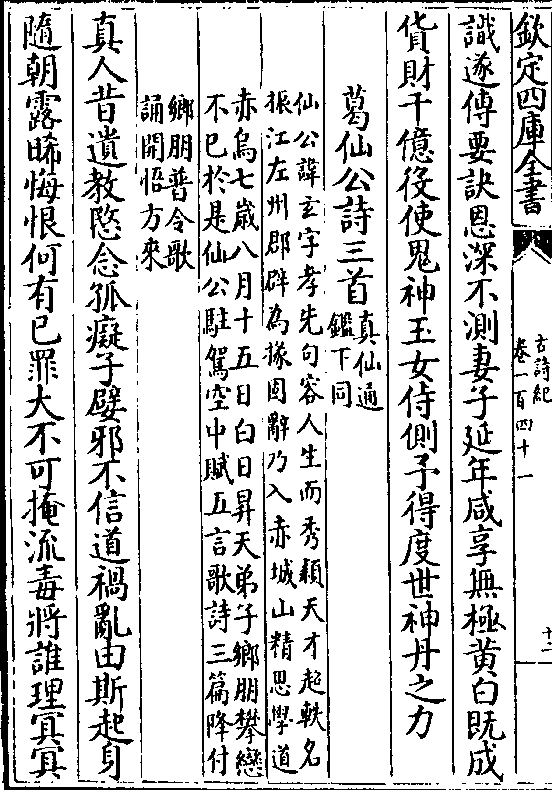 欽定四庫全書
古詩紀
卷一百四十一
十二
識遂傳要訣恩深不測妻子延年咸享無極黄白既成
貨財千億役使鬼神玉女侍側予得度世神丹之力
葛仙公詩三首
真仙通
鑑下同
仙公諱玄字孝先句容人生而秀頴天才超軼名
振江左州郡辟為掾固辭乃入赤城山精思學道
赤烏七歲八月十五日白日昇天弟子鄉朋攀戀
不已於是仙公駐駕空中賦五言歌詩三篇降付
鄉朋普令歌
誦開悟方來
真人昔遺教愍念孤癡子嬖邪不信道禍亂由斯起身
隨朝露晞悔恨何有已罪大不可掩流毒將誰理冥冥